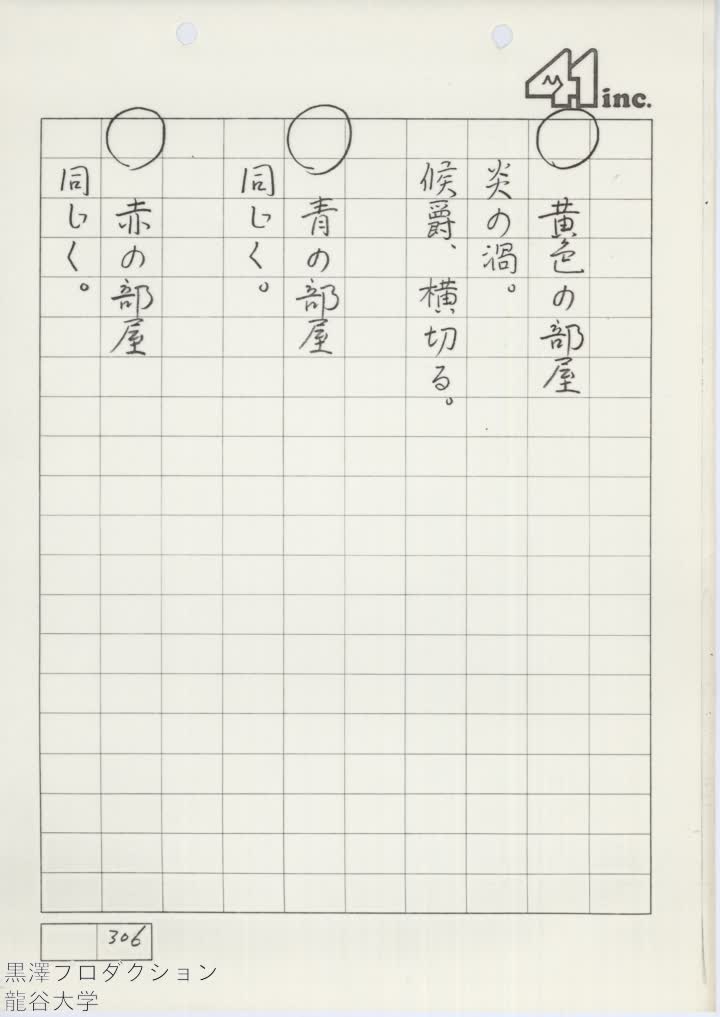 41 inc.
○ 黄色の部屋
炎の渦。
候爵、横切る。
○ 青の部屋
同じく。
○ 赤の部屋
同じく。
306
黒澤プロダクション
龍谷大学